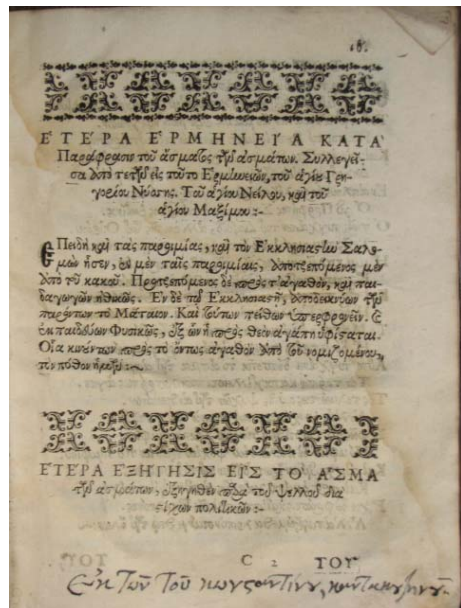 ΕΤΕΡΑ ΕΡΜΗΝΕΙΑ ΚΑΤΑ
Παράφρασιν τοῦ ἄσματος τῶν ἀσμάτων. Συλλεγεῖ-
σα ἀπὸ τε τῶν εἰς τοῦτο Ερμηνειῶν, τοῦ ἁγίου Γρη-
γορίου Νύσσης. Τοῦ ἁγίου Νείλου, καὶ τοῦ
ἁγίου Μαξίμου :-
ΕΠειδὴ καὶ ταῖς παροιμίαις, καὶ τὸν Εκκλησιαστὴν Σαλο-
μὼν ἦσεν, ἐν μὲν ταῖς παροιμίαις, ἀποτρεπόμενος μὲν
ἀπὸ τοῦ κακοῦ. Προτρεπόμενος δὲ πρὸς τ' ἀγαθὸν, καὶ παι-
δαγωγῶν ἠθικῶς. Εν δὲ τῷ Εκκλησιαστῇ, ἀποδεικνύων τῶν
παρόντων τὸ Μάταιον. Καὶ τούτων πείθων ὑπερφρονεῖν.
ἐκπαιδεύων Φυσικῶς, ἐξ ὧν ἡ πρὸς θεὸν ἀγάπη ὑφίσταται.
Οἷα κινούντων πρὸς τὸ ὄντως ἀγαθὸν ἀπὸ τοῦ νομιζομένου,
τὸν πόθον
ΕΤΕΡΑ ΕΞΗΓΗΣΙΣ ΕΙΣ ΤΟ ΑΣΜΑ
τῶν ἀσμάτων, ἐξηγηθὲν παρὰ τοῦ Ψελλοῦ δια
στίχων πολιτικῶν :-
C 2 ΤΟΥ
Εκ τῶν τοῦ κωνσταντίνου καντακουζηνοῦ